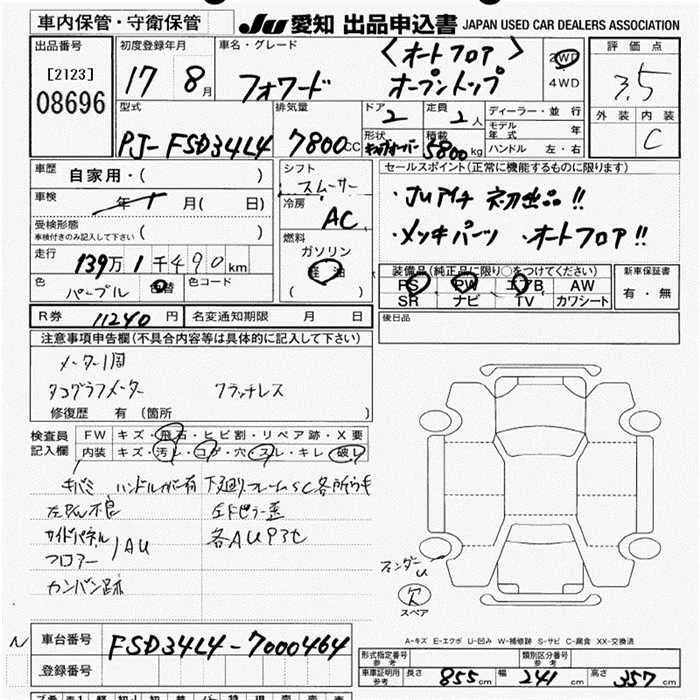 車内保管・守衛保管
JU 愛知 出品申込書 JAPAN USED CAR DEALERS ASSOCIATION
出品番号 [2123] 08696
初度登録年月 17 8月
車名・グレード フォワード <オートフロア> オープントップ
2WD 4WD
評価点 3.5
外装 内装 C
型式 PJ-FSD34L4
排気量 7800CC
ドア 2
定員 2人
形状
積載 5800kg
ディーラー・並行
モデル年式 年
ハンドル 左・右
車歴 自家用・( )
車検 年 月( 日)
受検形態 車検付きのみ記入して下さい ( )
走行 139万1千490km
色 パープル 色替 色コード
シフト スムーサー
冷房 AC
燃料 ガソリン 軽油 ( )
セールスポイント(正常に機能するものに限ります)
・JUアイチ 初出品!!
・メッキパーツ ・オートフロア!!
装備品(純正品に限り○をつけてください)
PS PW エアB AW
SR ナビ TV カワシート
新車保証書 有・無
R券 11240円
名変通知期限 月 日
後日品
注意事項申告欄(不具合内容等は具体的に記入して下さい)
メーター1周
タコグラフメーター クラッチレス
修復歴 有(箇所 )
検査員記入欄
FW キズ・飛石・ヒビ割・リペア跡・X要
内装 キズ・汚レ・コゲ・穴・スレ・キレ・破レ
キバミ ハンドル
下廻りフレームSC各所
サイドパネル
フロアー
AU
各AU
カンバン跡
フェンダーU
欠 スペア
A-キズ E-エクボ U-凹み W-補修跡 S-サビ C-腐食 XX-交換済
N
車台番号 FSD34L4-7000464
登録番号
形式指定番号 参考
類別区分番号 参考
車庫証明用 参考 長さ 855cm 幅 241cm 高さ 357cm